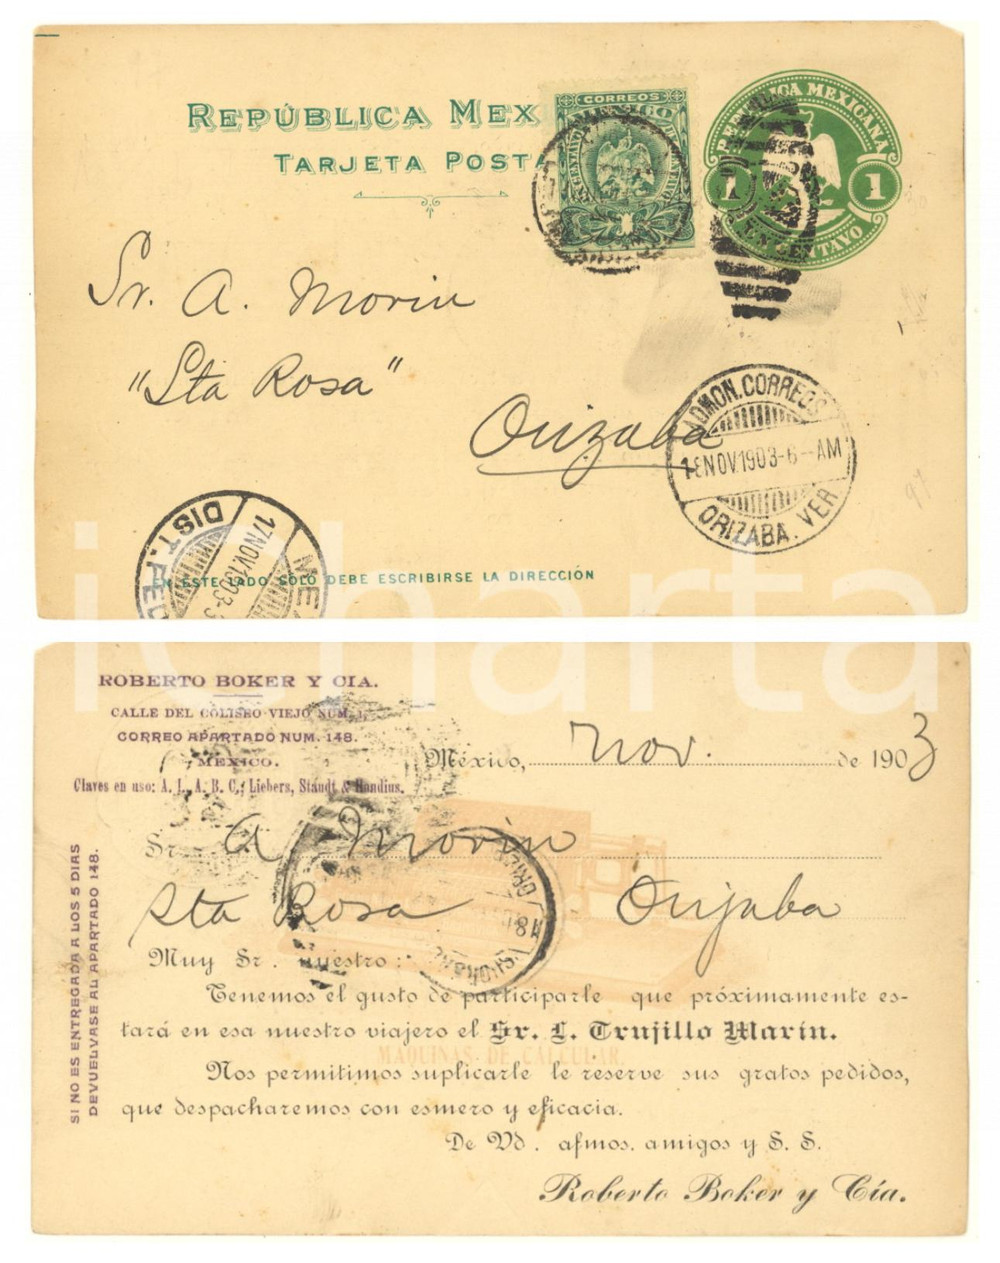 REPÚBLICA MEX
TARJETA POSTA
CORREOS
MEXICO
1
REPUBLICA MEXICANA
1 1
UN CENTAVO
Sr. A. Morin
"Sta Rosa"
Orizaba
ADMON. CORREOS
18 NOV. 1903-6-AM
ORIZABA. VER
DIST. FED
17 NOV. 1903-
ME
EN ESTE LADO SOLO DEBE ESCRIBIRSE LA DIRECCIÓN
iCharta
ROBERTO BOKER Y CIA.
CALLE DEL COLISEO VIEJO NUM.
CORREO APARTADO NUM. 148.
MEXICO.
Claves en uso: A. I., A. B. C.; Liebers, Staudt & Hundius.
México, Nov. de 1903
Sr. A Morin
Sta Rosa Orizaba
Muy Sr. nuestro:
Tenemos el gusto de participarle que próximamente es-
tará en esa nuestro viajero el Sr. L. Trujillo Marín.
MAQUINAS DE CALCULAR.
Nos permitimos suplicarle le reserve sus gratos pedidos,
que despacharemos con esmero y eficacia.
De Vd. afmos. amigos y S. S.
Roberto Boker y Cía.
SI NO ES ENTREGADA A LOS 5 DIAS
DEVUELVASE AL APARTADO 148.